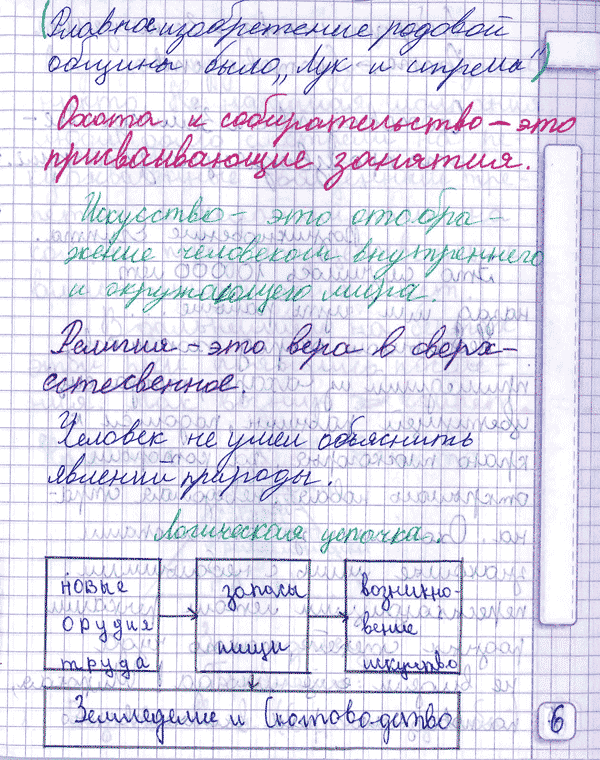 (Главное изобретение родовой
общины было „Лук и стрела")
Охота и собирательство – это
присваивающие занятия.
Искусство – это отобра-
жение человеком внутреннего
и окружающего мира.
Религия – это вера в сверх-
естественное.
Человек не умел объяснить
явлений природы.
Логическая цепочка.
новые
орудия
труда
запасы
пищи
возникно-
вение
искуство
Земледелие и Скотоводство
6